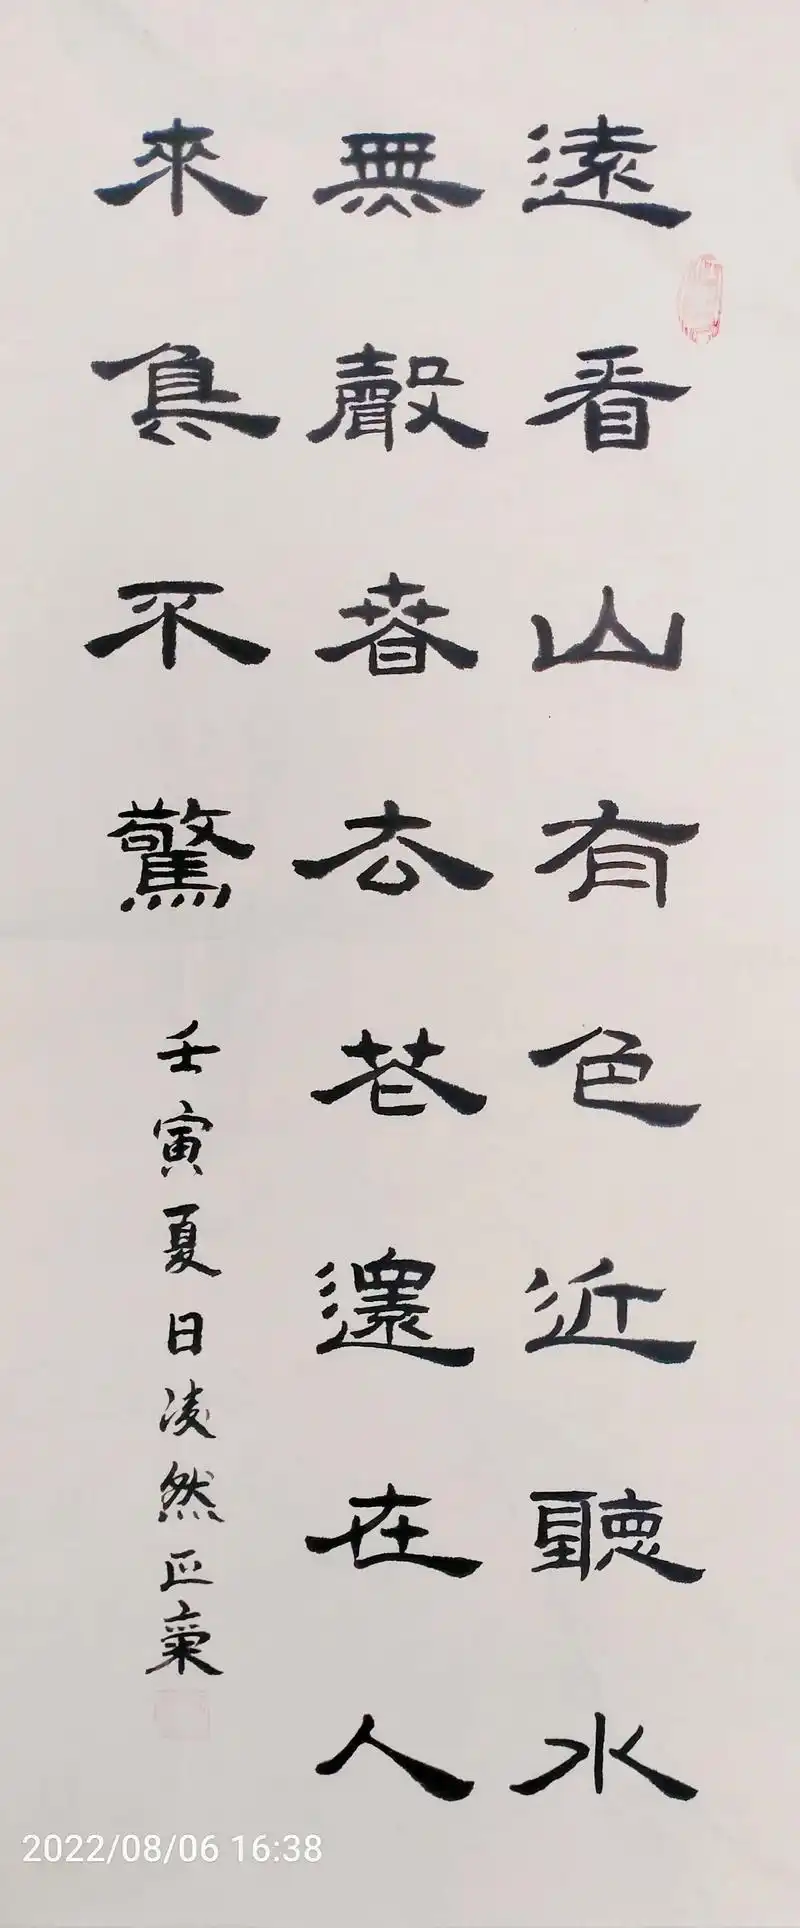 遠看山有色近聽水
無聲春去花還在人
來鳥不驚
壬寅夏日凌然正氣
2022/08/06 16:38